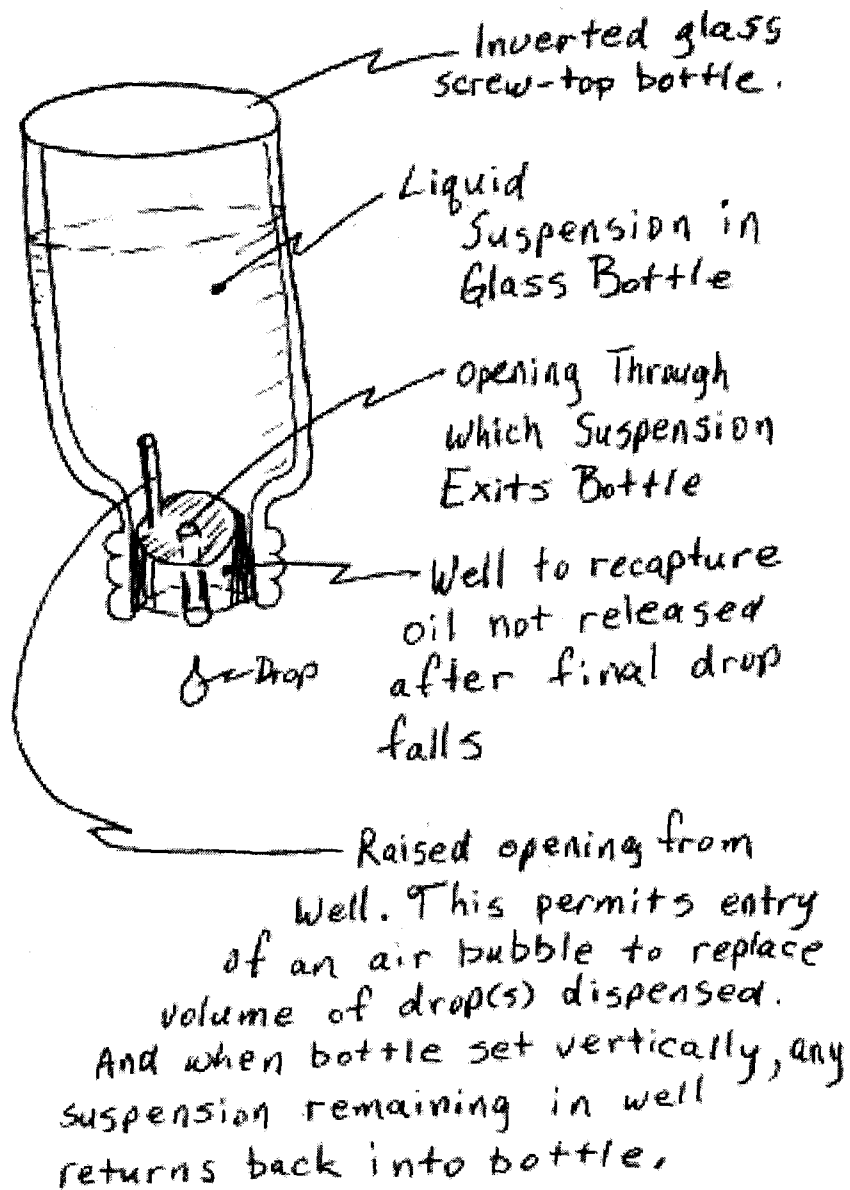 Inverted glass
screw-top bottle.
Liquid
Suspension in
Glass Bottle
Opening Through
which Suspension
Exits Bottle
Well to recapture
oil not released
after final drop
falls
Drop
Raised opening from
Well. This permits entry
of an air bubble to replace
volume of drop(s) dispensed.
And when bottle set vertically, any
suspension remaining in well
returns back into bottle.